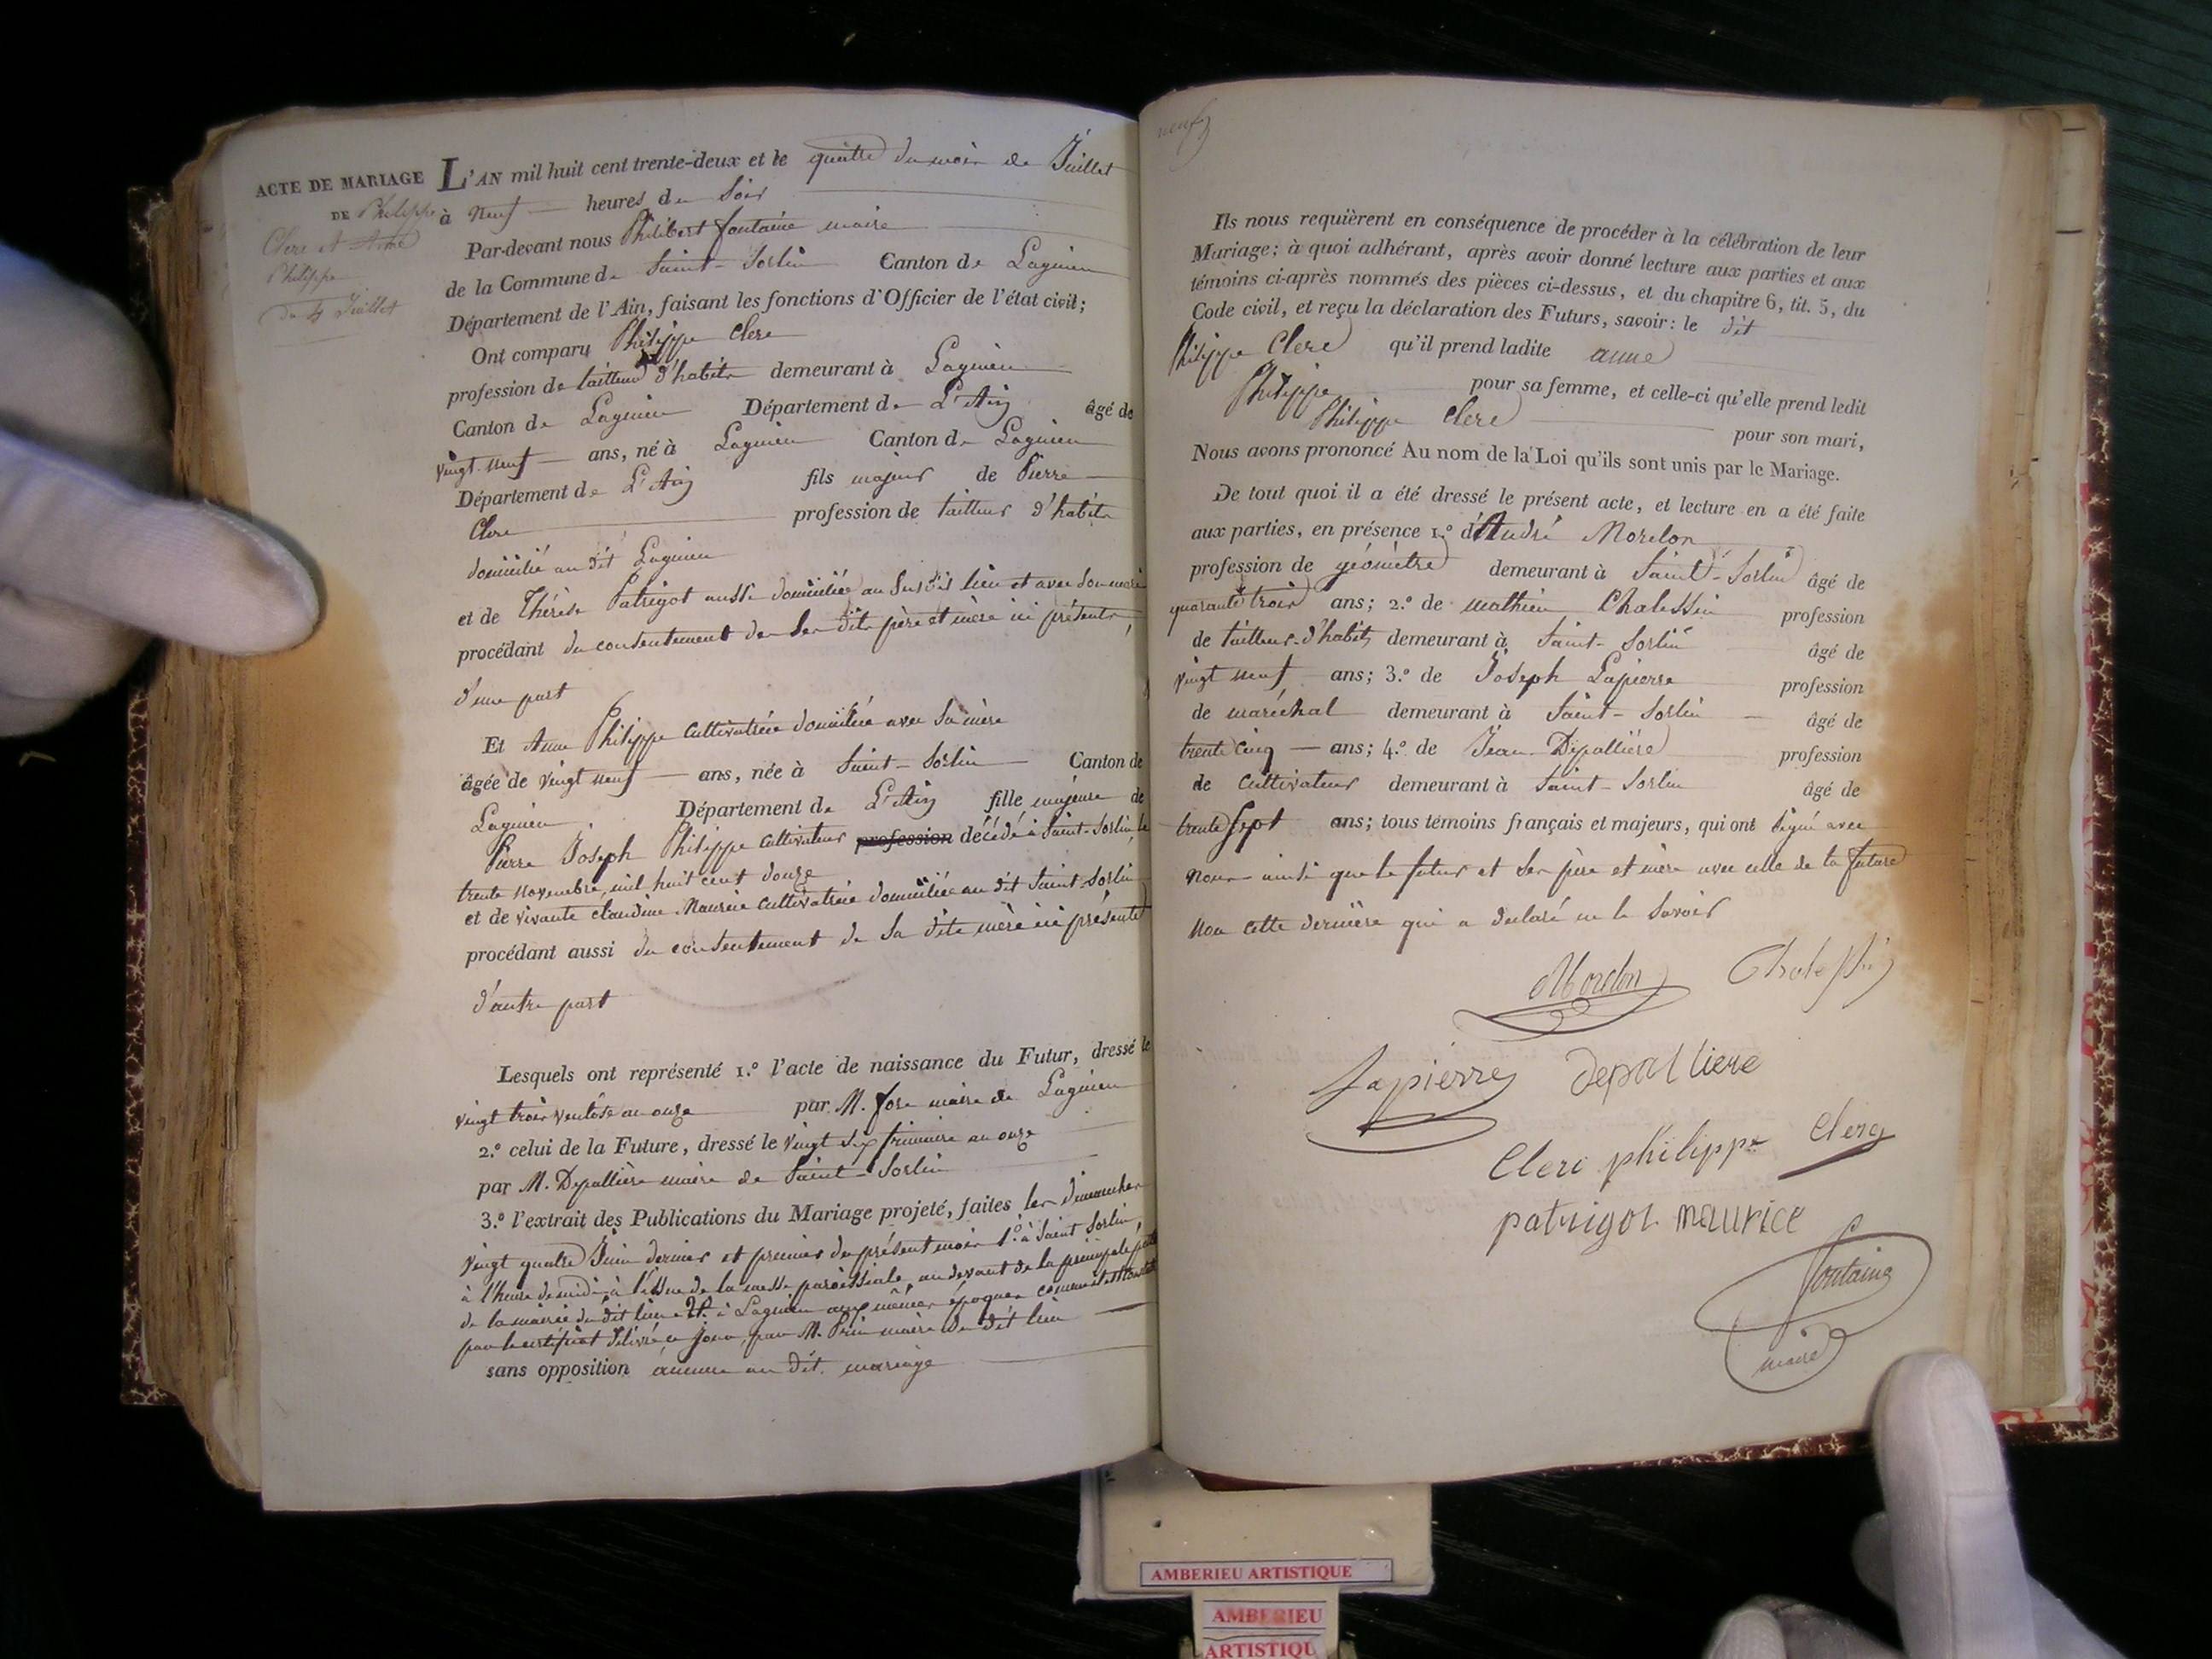 ACTE DE MARIAGE
DE Philippe
Clerc et Anne
Philippe
du 4 Juillet
L'AN mil huit cent trente-deux et le quatre du mois de Juillet
à neuf heures du soir
Par-devant nous Philibert fontaine maire
de la Commune de Saint-Sorlin Canton de Lagnieu
Département de l'Ain, faisant les fonctions d'Officier de l'état civil;
Ont comparu Philippe Clerc
profession de tailleur d'habits demeurant à Lagnieu
Canton de Lagnieu Département de L'Ain âgé de
vingt neuf ans, né à Lagnieu Canton de Lagnieu
Département de L'Ain fils majeur de Pierre
Clerc profession de tailleur d'habits
domicilié au dit Lagnieu
et de Thérèse Patrigot aussi domiciliée au susdit lieu et avec son mari
procédant du consentement de ses dits père et mère ici présents,
d'une part
Et Anne Philippe cultivatrice domiciliée avec sa mère
âgée de vingt neuf ans, née à Saint-Sorlin Canton de
Lagnieu Département de L'Ain fille majeure de
Pierre Joseph Philippe cultivateur profession décédé à Saint-Sorlin le
trente novembre mil huit cent douze
et de vivante claudine Maurice cultivatrice domiciliée au dit Saint-Sorlin
procédant aussi du consentement de sa dite mère ici présente
d'autre part
Lesquels ont représenté 1.º l'acte de naissance du Futur, dressé le
vingt trois ventôse an onze par M. maire de Lagnieu
2.º celui de la Future, dressé le vingt six frimaire an onze
par M. Depallière maire de Saint-Sorlin
3.º l'extrait des Publications du Mariage projeté, faites les dimanches
vingt quatre Juin dernier et premier du présent mois 1.º à Saint Sorlin,
à l'heure de midi à l'issue de la messe paroissiale, au devant de la principale porte
de la mairie du dit lieu et 2.º à Lagnieu aux mêmes époques comme il est constaté
par le certificat délivré ce jour, par M. maire du dit lieu
sans opposition aucune au dit mariage
neuf
Ils nous requièrent en conséquence de procéder à la célébration de leur
Mariage; à quoi adhérant, après avoir donné lecture aux parties et aux
témoins ci-après nommés des pièces ci-dessus, et du chapitre 6, tit. 5, du
Code civil, et reçu la déclaration des Futurs, savoir: le dit
Philippe Clerc qu'il prend ladite anne
Philippe pour sa femme, et celle-ci qu'elle prend ledit
Philippe Clerc pour son mari,
Nous avons prononcé Au nom de la Loi qu'ils sont unis par le Mariage.
De tout quoi il a été dressé le présent acte, et lecture en a été faite
aux parties, en présence 1.º d'André Morelon
profession de géomètre demeurant à Saint-Sorlin âgé de
quarante trois ans; 2.º de mathieu Chalessin profession
de tailleur d'habits demeurant à Saint-Sorlin âgé de
vingt neuf ans; 3.º de Joseph Lapierre profession
de maréchal demeurant à Saint-Sorlin âgé de
trente cinq ans; 4.º de Jean Depallière profession
de cultivateur demeurant à Saint-Sorlin âgé de
trente sept ans; tous témoins français et majeurs, qui ont signé avec
nous ainsi que le futur et ses père et mère avec celle de la future
non cette dernière qui a déclaré ne le savoir
Morelon Chalessin
Lapierre depalliere
Clerc philippe Clerc
patrigot maurice
fontaine
maire
AMBERIEU ARTISTIQUE
AMBERIEU
ARTISTIQU